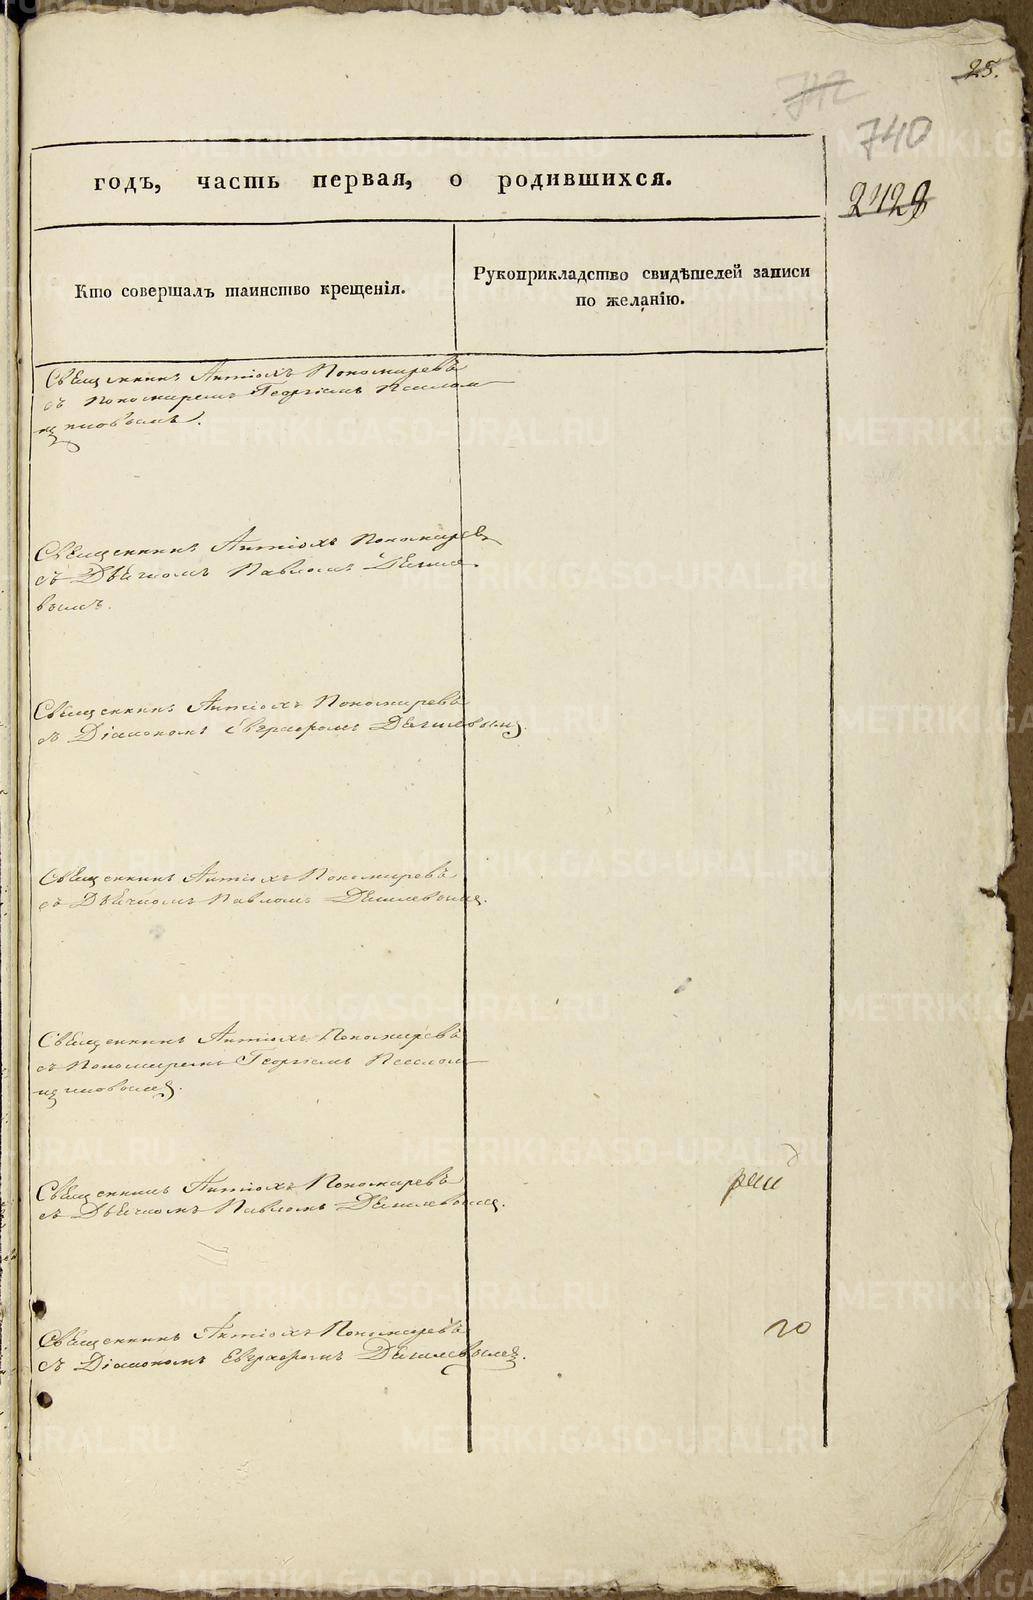 25.
742
740
2428
годъ, часть первая, о родившихся.
Кто совершалъ таинство крещенія.
Рукоприкладство свидѣтелей записи
по желанію.
Священникъ Антіохъ Пономаревъ
съ Пономаремъ Георгіемъ
Священникъ Антіохъ Пономарев
съ Дьячкомъ Павломъ
вымъ.
Священникъ Антіохъ Пономаревъ
съ Діакономъ Евграфомъ
Священникъ Антіохъ Пономаревъ
съ Дьячкомъ Павломъ
Священникъ Антіохъ Пономаревъ
съ Пономаремъ Георгіемъ
Священникъ Антіохъ Пономаревъ
съ Дьячкомъ Павломъ
Священникъ Антіохъ Пономаревъ
съ Діакономъ Евграфомъ
METRIKI.GASO-URAL.RU